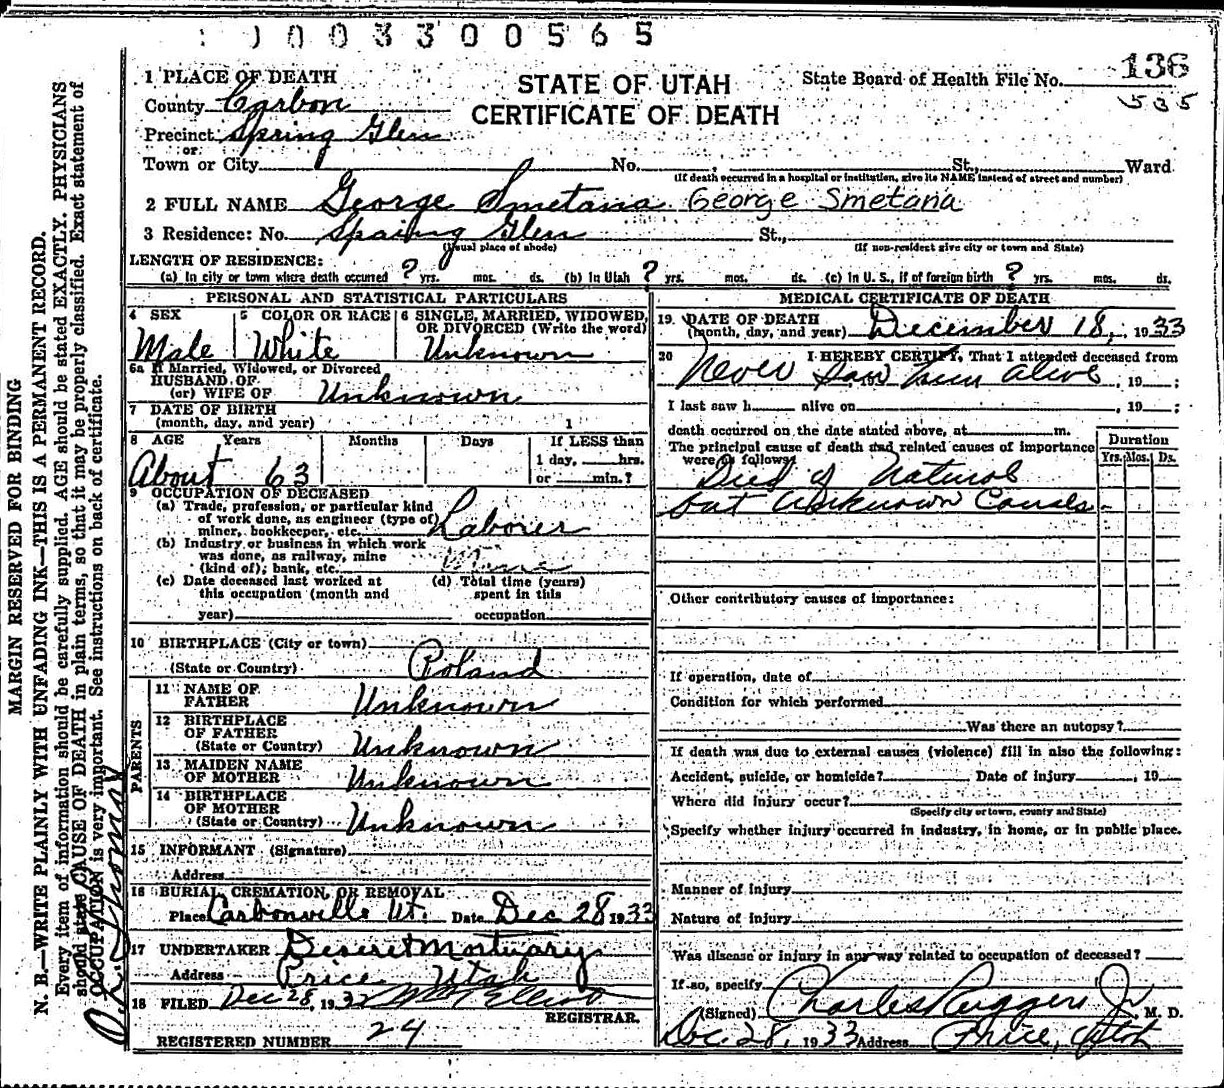 1003300565
136
535
STATE OF UTAH
CERTIFICATE OF DEATH
State Board of Health File No.
1 PLACE OF DEATH
County Carbon
Precinct Spring Glen
or
Town or City No. , St., Ward
(If death occurred in a hospital or institution, give its NAME instead of street and number)
2 FULL NAME George Smetana George Smetana
3 Residence: No. Spring Glen St.,
(Usual place of abode) (If non-resident give city or town and State)
LENGTH OF RESIDENCE:
(a) In city or town where death occurred ? yrs. mos. ds. (b) In Utah ? yrs. mos. ds. (c) In U. S., if of foreign birth ? yrs. mos. ds.
PERSONAL AND STATISTICAL PARTICULARS
4 SEX
Male
5 COLOR OR RACE
White
6 SINGLE, MARRIED, WIDOWED,
OR DIVORCED (Write the word)
Unknown
6a If Married, Widowed, or Divorced
HUSBAND OF
(or) WIFE OF Unknown
7 DATE OF BIRTH
(month, day, and year) 1
8 AGE Years Months Days If LESS than
1 day, hrs.
or min.?
About 63
9 OCCUPATION OF DECEASED
(a) Trade, profession, or particular kind
of work done, as engineer (type of)
miner, bookkeeper, etc. Laborer
(b) Industry or business in which work
was done, as railway, mine
(kind of); bank, etc. Mine
(c) Date deceased last worked at
this occupation (month and
year)
(d) Total time (years)
spent in this
occupation
10 BIRTHPLACE (City or town)
(State or Country) Poland
PARENTS
11 NAME OF
FATHER Unknown
12 BIRTHPLACE
OF FATHER
(State or Country) Unknown
13 MAIDEN NAME
OF MOTHER Unknown
14 BIRTHPLACE
OF MOTHER
(State or Country) Unknown
15 INFORMANT (Signature)
Address
16 BURIAL, CREMATION, OR REMOVAL
Place Carbonville Ut. Date Dec 28 1933
17 UNDERTAKER Deseret Mortuary
Address Price Utah
18 FILED Dec 28, 193 Elliott
REGISTRAR.
REGISTERED NUMBER 24
MEDICAL CERTIFICATE OF DEATH
19 DATE OF DEATH
(month, day, and year) December 18, 1933
20 I HEREBY CERTIFY, That I attended deceased from
Never saw him alive , 19 ;
I last saw h alive on , 19 ;
death occurred on the date stated above, at m.
The principal cause of death and related causes of importance
were as follows:
Duration
Yrs. Mos. Ds.
Died of Natural
but unknown Causes
Other contributory causes of importance:
If operation, date of
Condition for which performed
Was there an autopsy?
If death was due to external causes (violence) fill in also the following:
Accident, suicide, or homicide? Date of injury , 19
Where did injury occur?
(Specify city or town, county and State)
Specify whether injury occurred in industry, in home, or in public place.
Manner of injury
Nature of injury
Was disease or injury in any way related to occupation of deceased?
If so, specify
(Signed) Charles Ruggeri Jr. M. D.
Dec. 28, 1933 Address Price, Utah
MARGIN RESERVED FOR BINDING
N. B.—WRITE PLAINLY WITH UNFADING INK—THIS IS A PERMANENT RECORD.
Every item of information should be carefully supplied. AGE should be stated EXACTLY. PHYSICIANS
should state CAUSE OF DEATH in plain terms, so that it may be properly classified. Exact statement of
OCCUPATION is very important. See instructions on back of certificate.